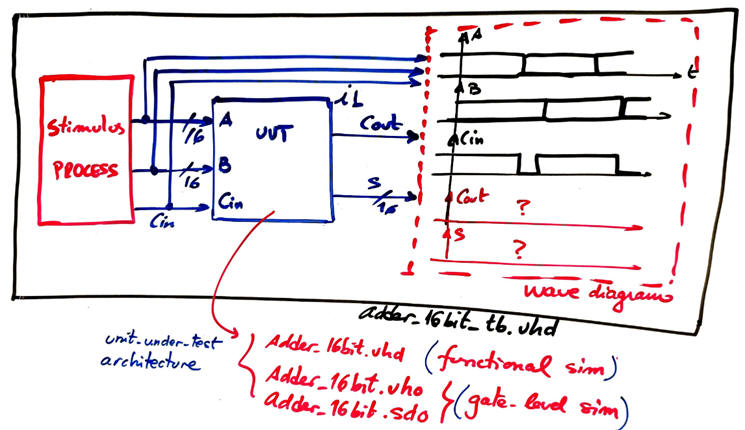 Stimulus
PROCESS
16
16
Cin
A
B
Cin
UUT
i1
Cout
S
16
A
t
B
Cin
Cout
?
S
?
wave diagrams
adder_16bit_tb.vhd
unit_under_test
architecture
Adder_16bit.vhd (functional sim)
Adder_16bit.vho
adder_16bit.sdo
(gate-level sim)